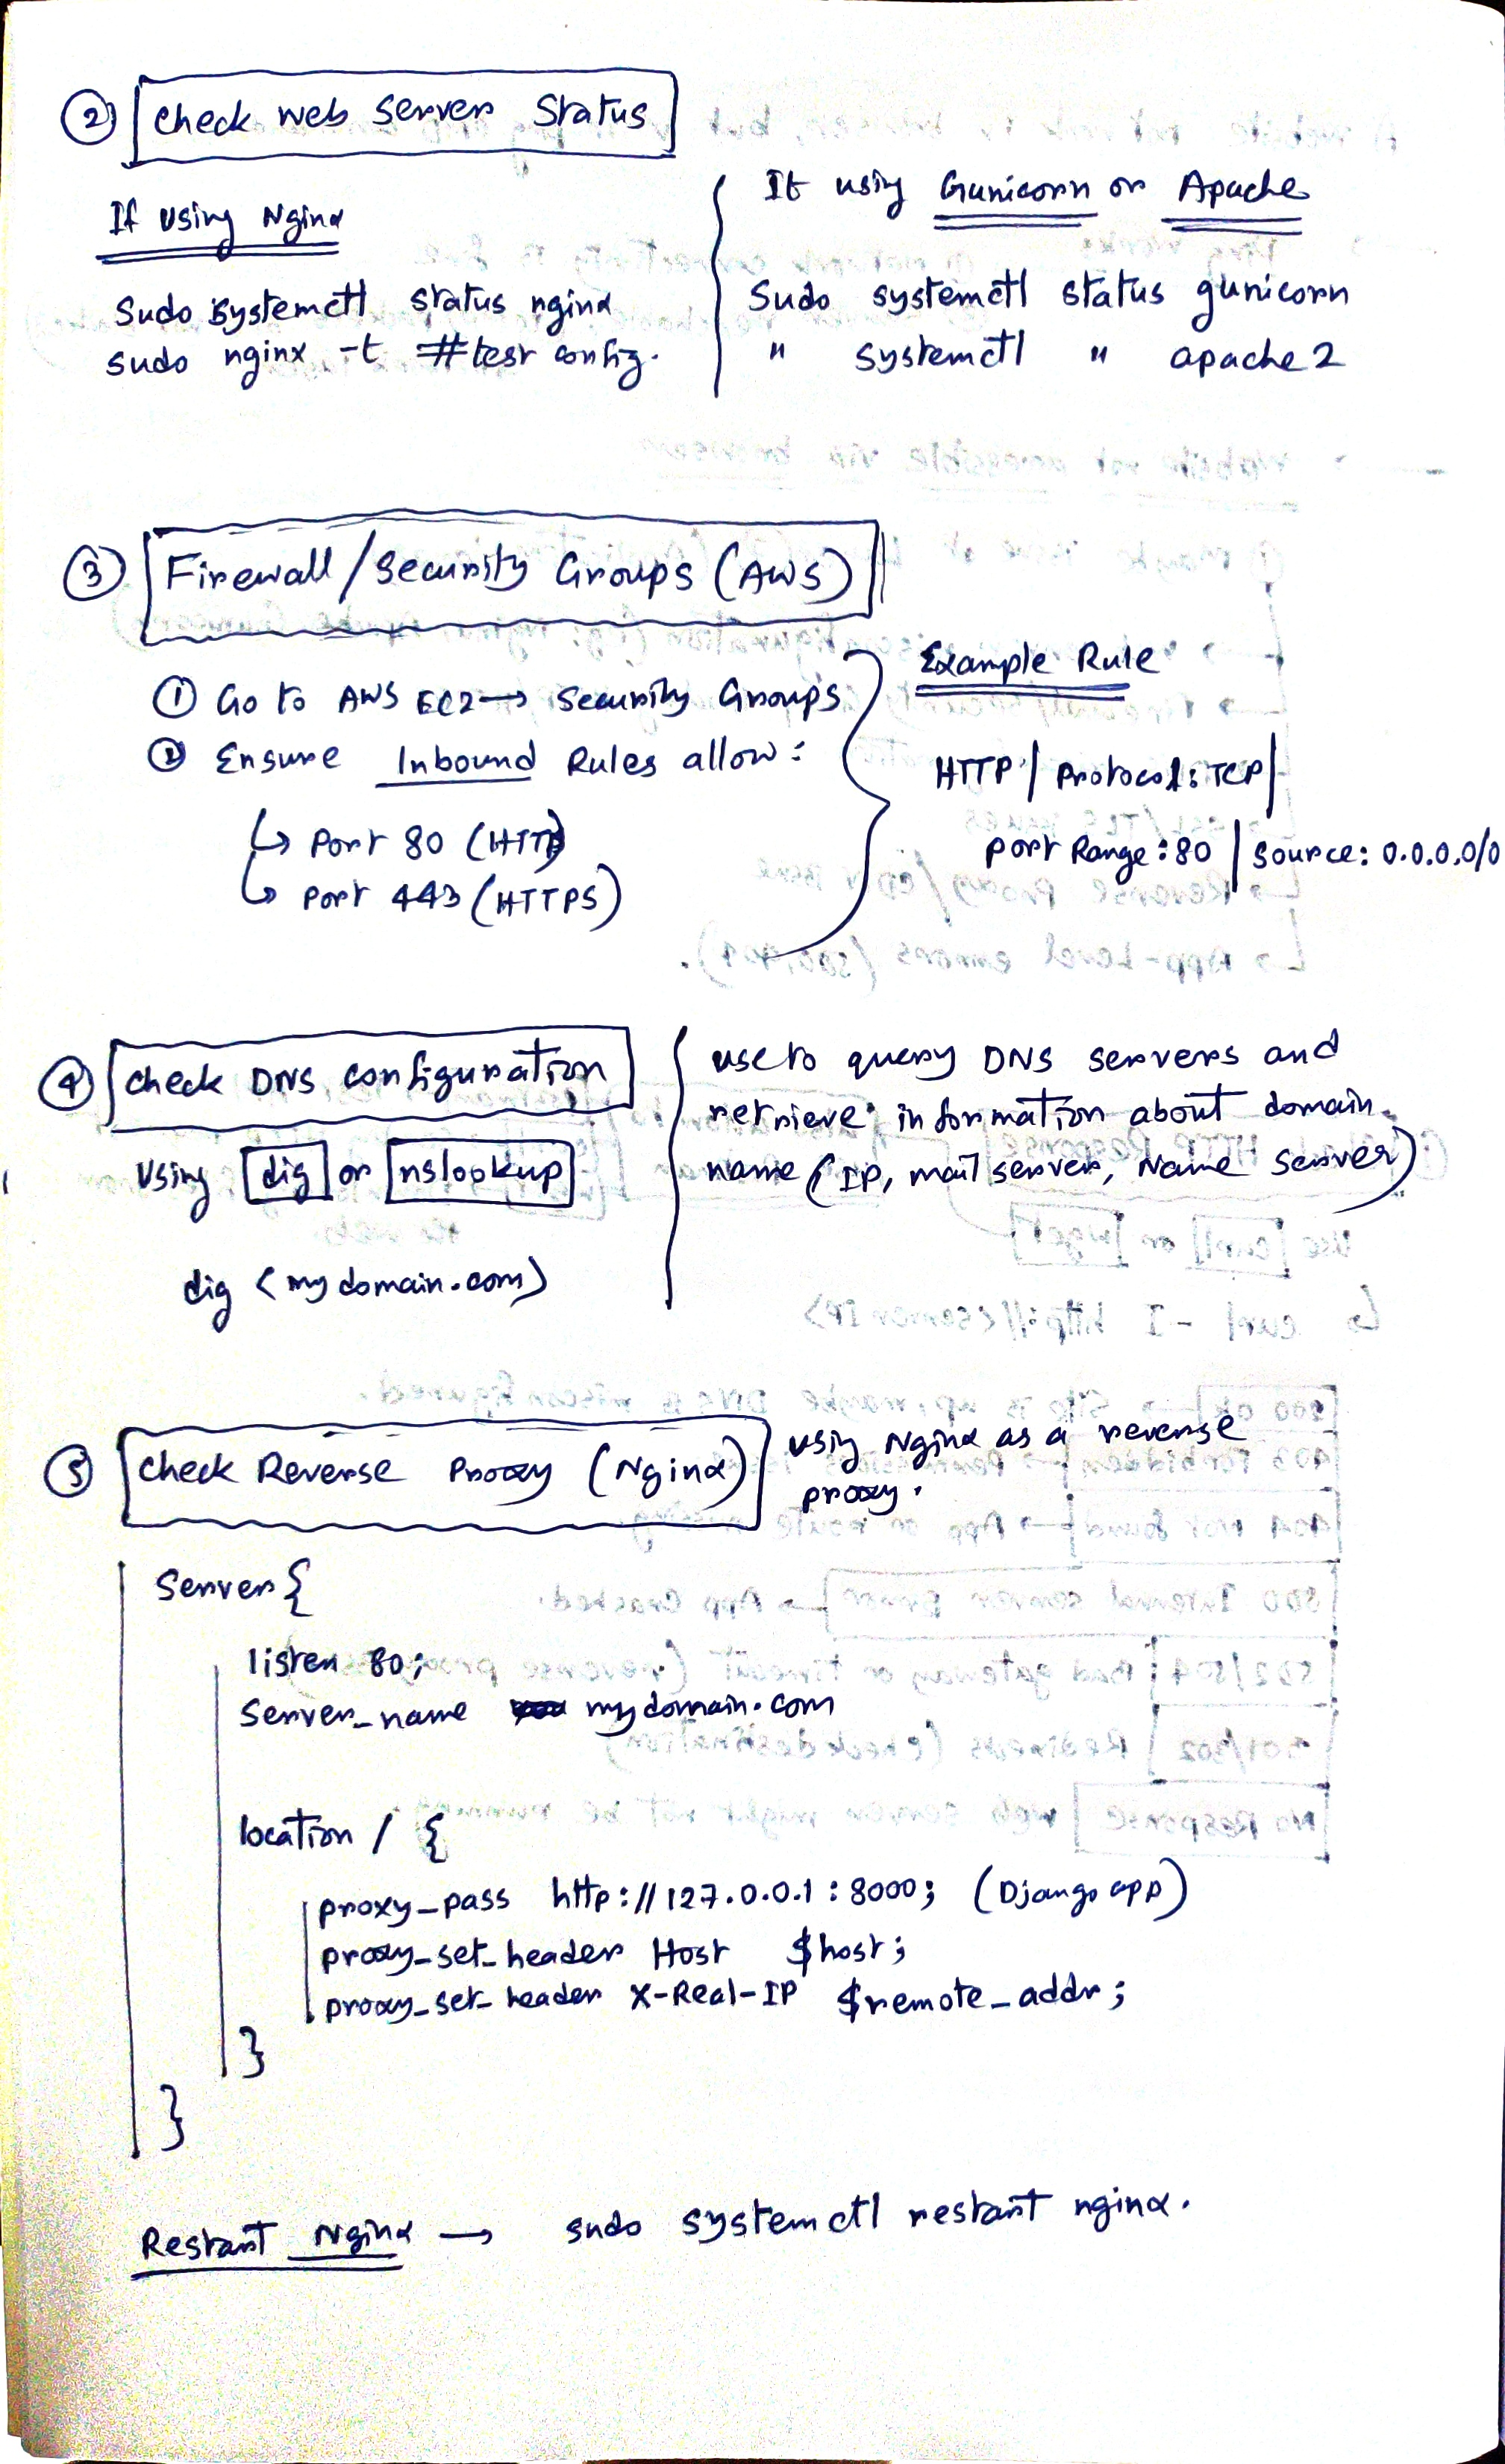 ② Check Web Server Status
If using Nginx
Sudo systemctl status nginx
sudo nginx -t #test config.
If using Gunicorn or Apache
Sudo systemctl status gunicorn
" systemctl " apache2
③ Firewall/Security Groups (AWS)
① Go to AWS EC2 → Security Groups
② Ensure Inbound Rules allow:
↳ Port 80 (HTTP)
↳ Port 443 (HTTPS)
Example Rule
HTTP | Protocol: TCP |
port Range: 80 | Source: 0.0.0.0/0
④ Check DNS configuration
Using dig or nslookup
dig <mydomain.com>
use to query DNS servers and
retrieve information about domain
name (IP, mail server, Name server)
⑤ Check Reverse Proxy (Nginx)
using Nginx as a reverse
proxy.
Server {
listen 80;
Server_name mydomain.com
location / {
proxy_pass http://127.0.0.1:8000; (Django app)
proxy_set_header Host $host;
proxy_set_header X-Real-IP $remote_addr;
}
}
Restart Nginx → sudo systemctl restart nginx.